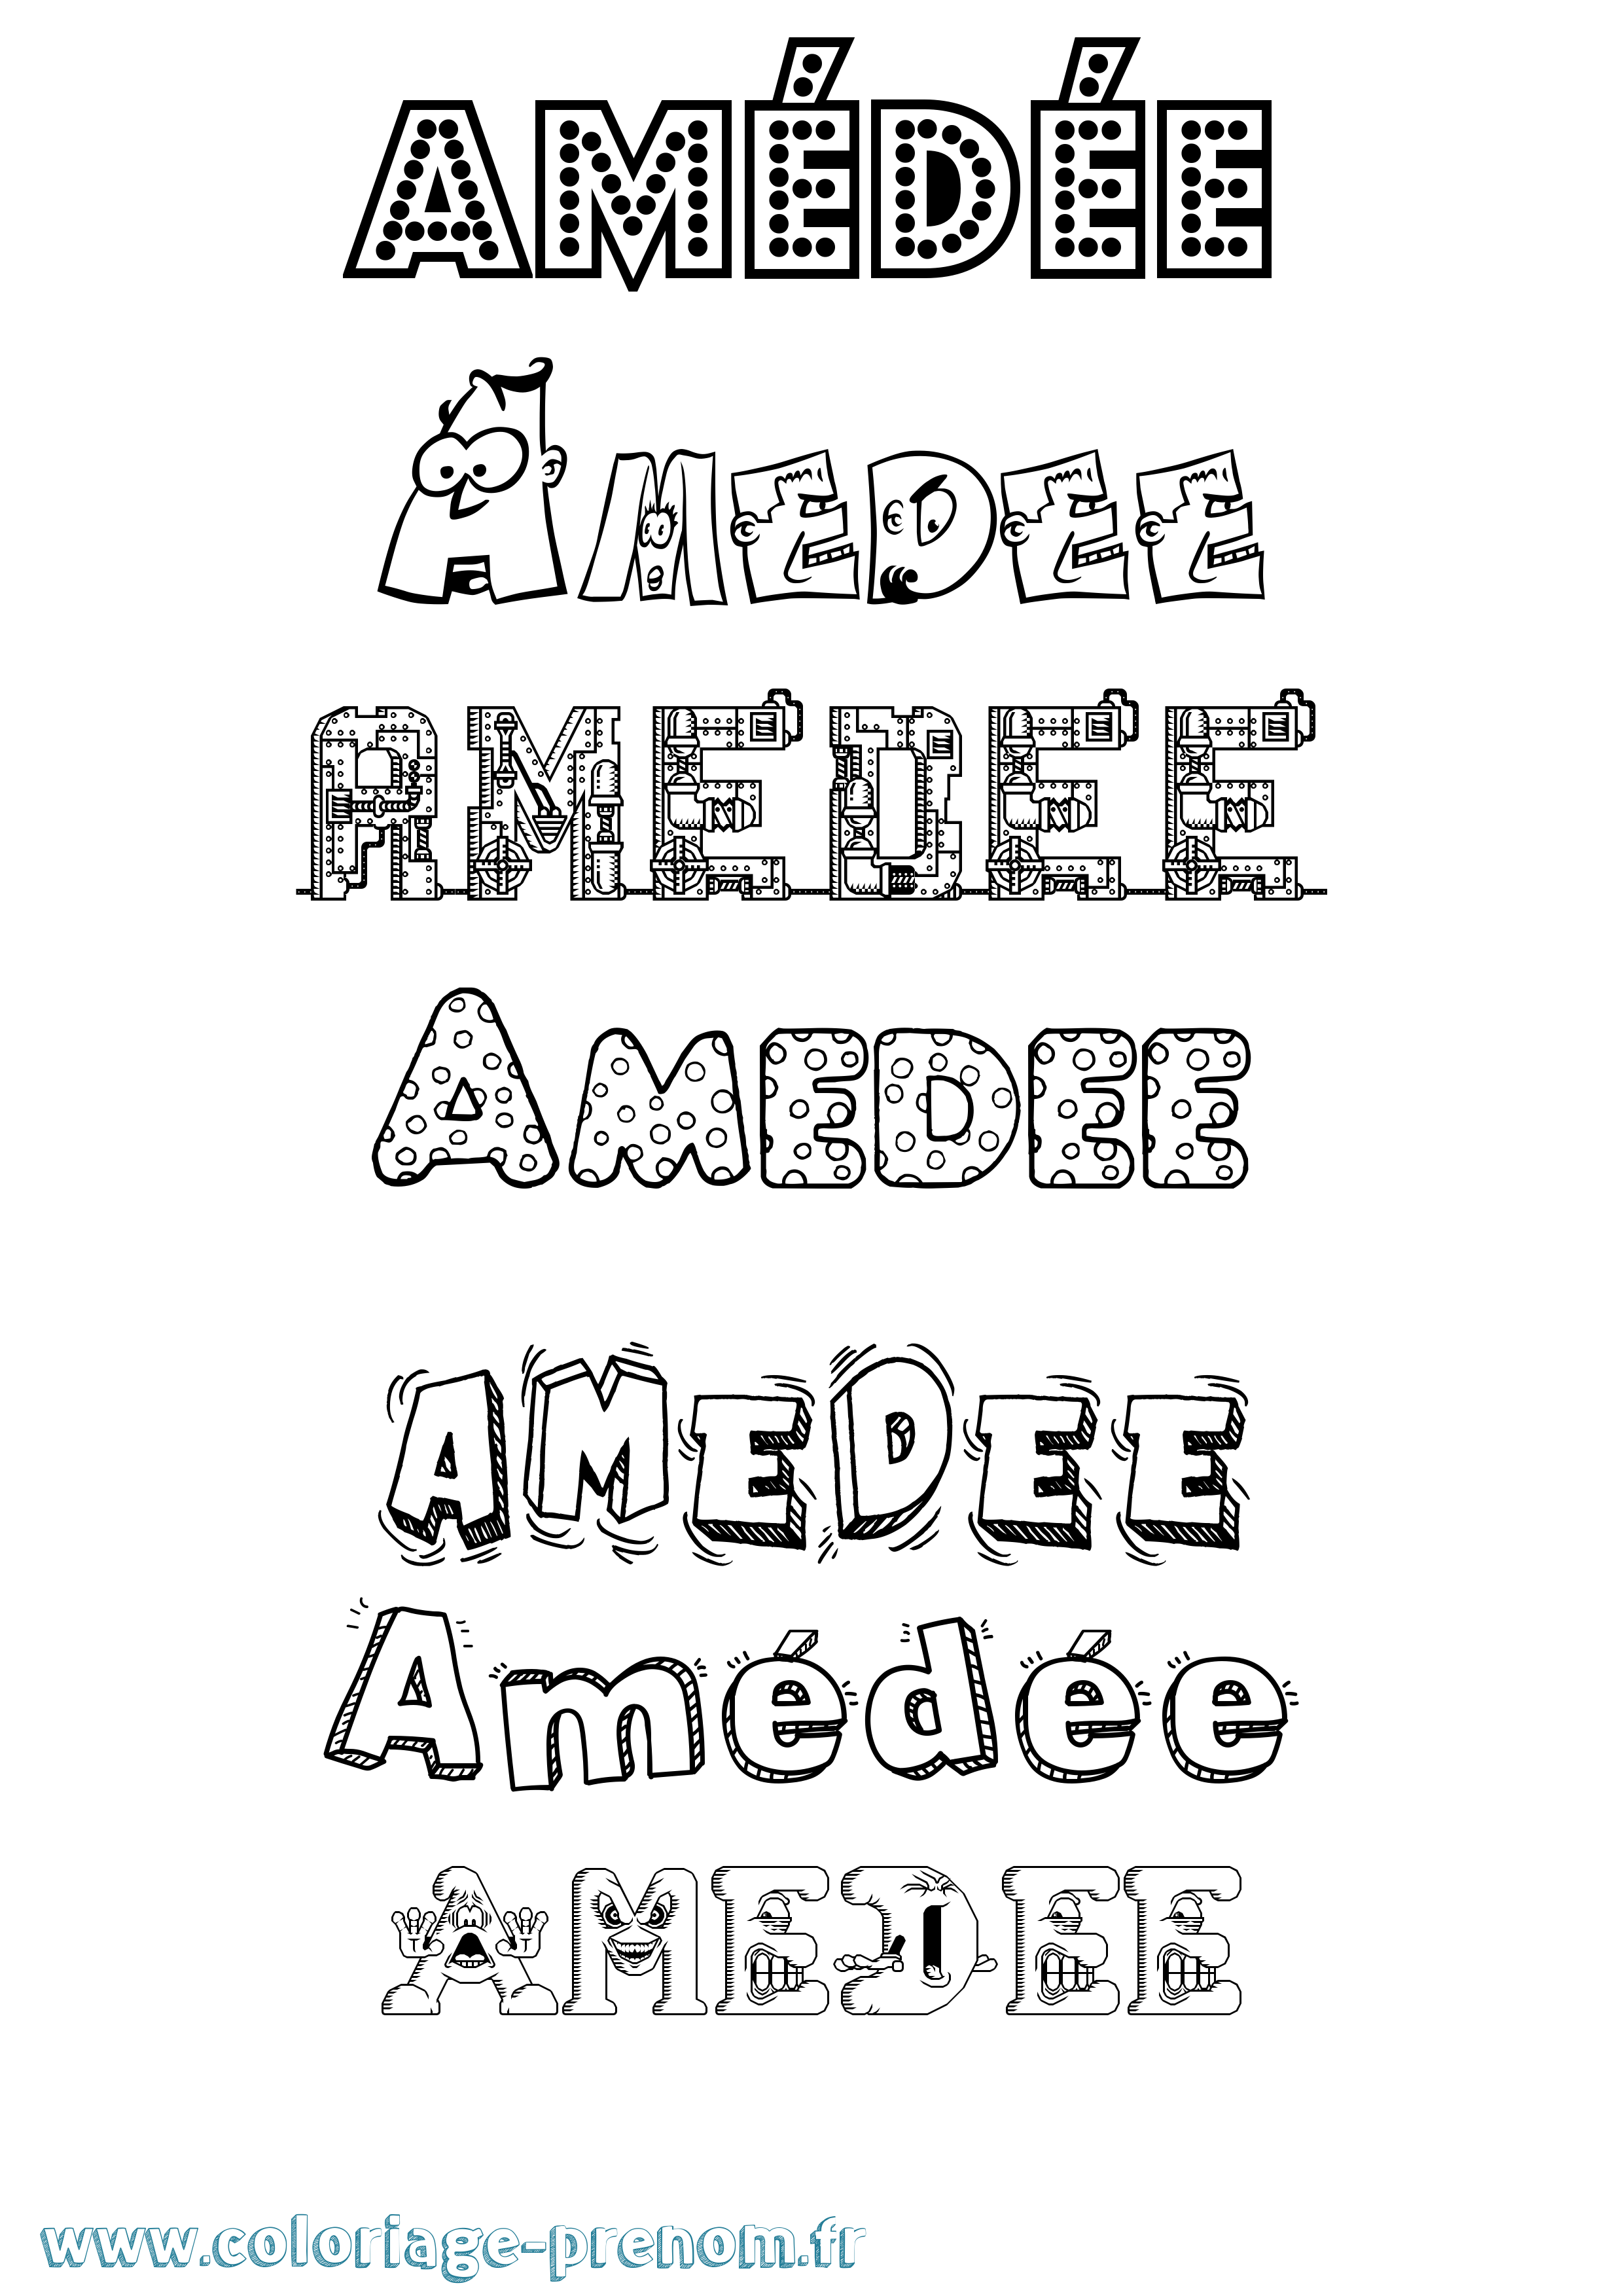 AMÉDÉE
AMEDEE
AMEDEE
AMEDEE
AMEDEE
Amédée
AMEDEE
www.coloriage-prenom.fr